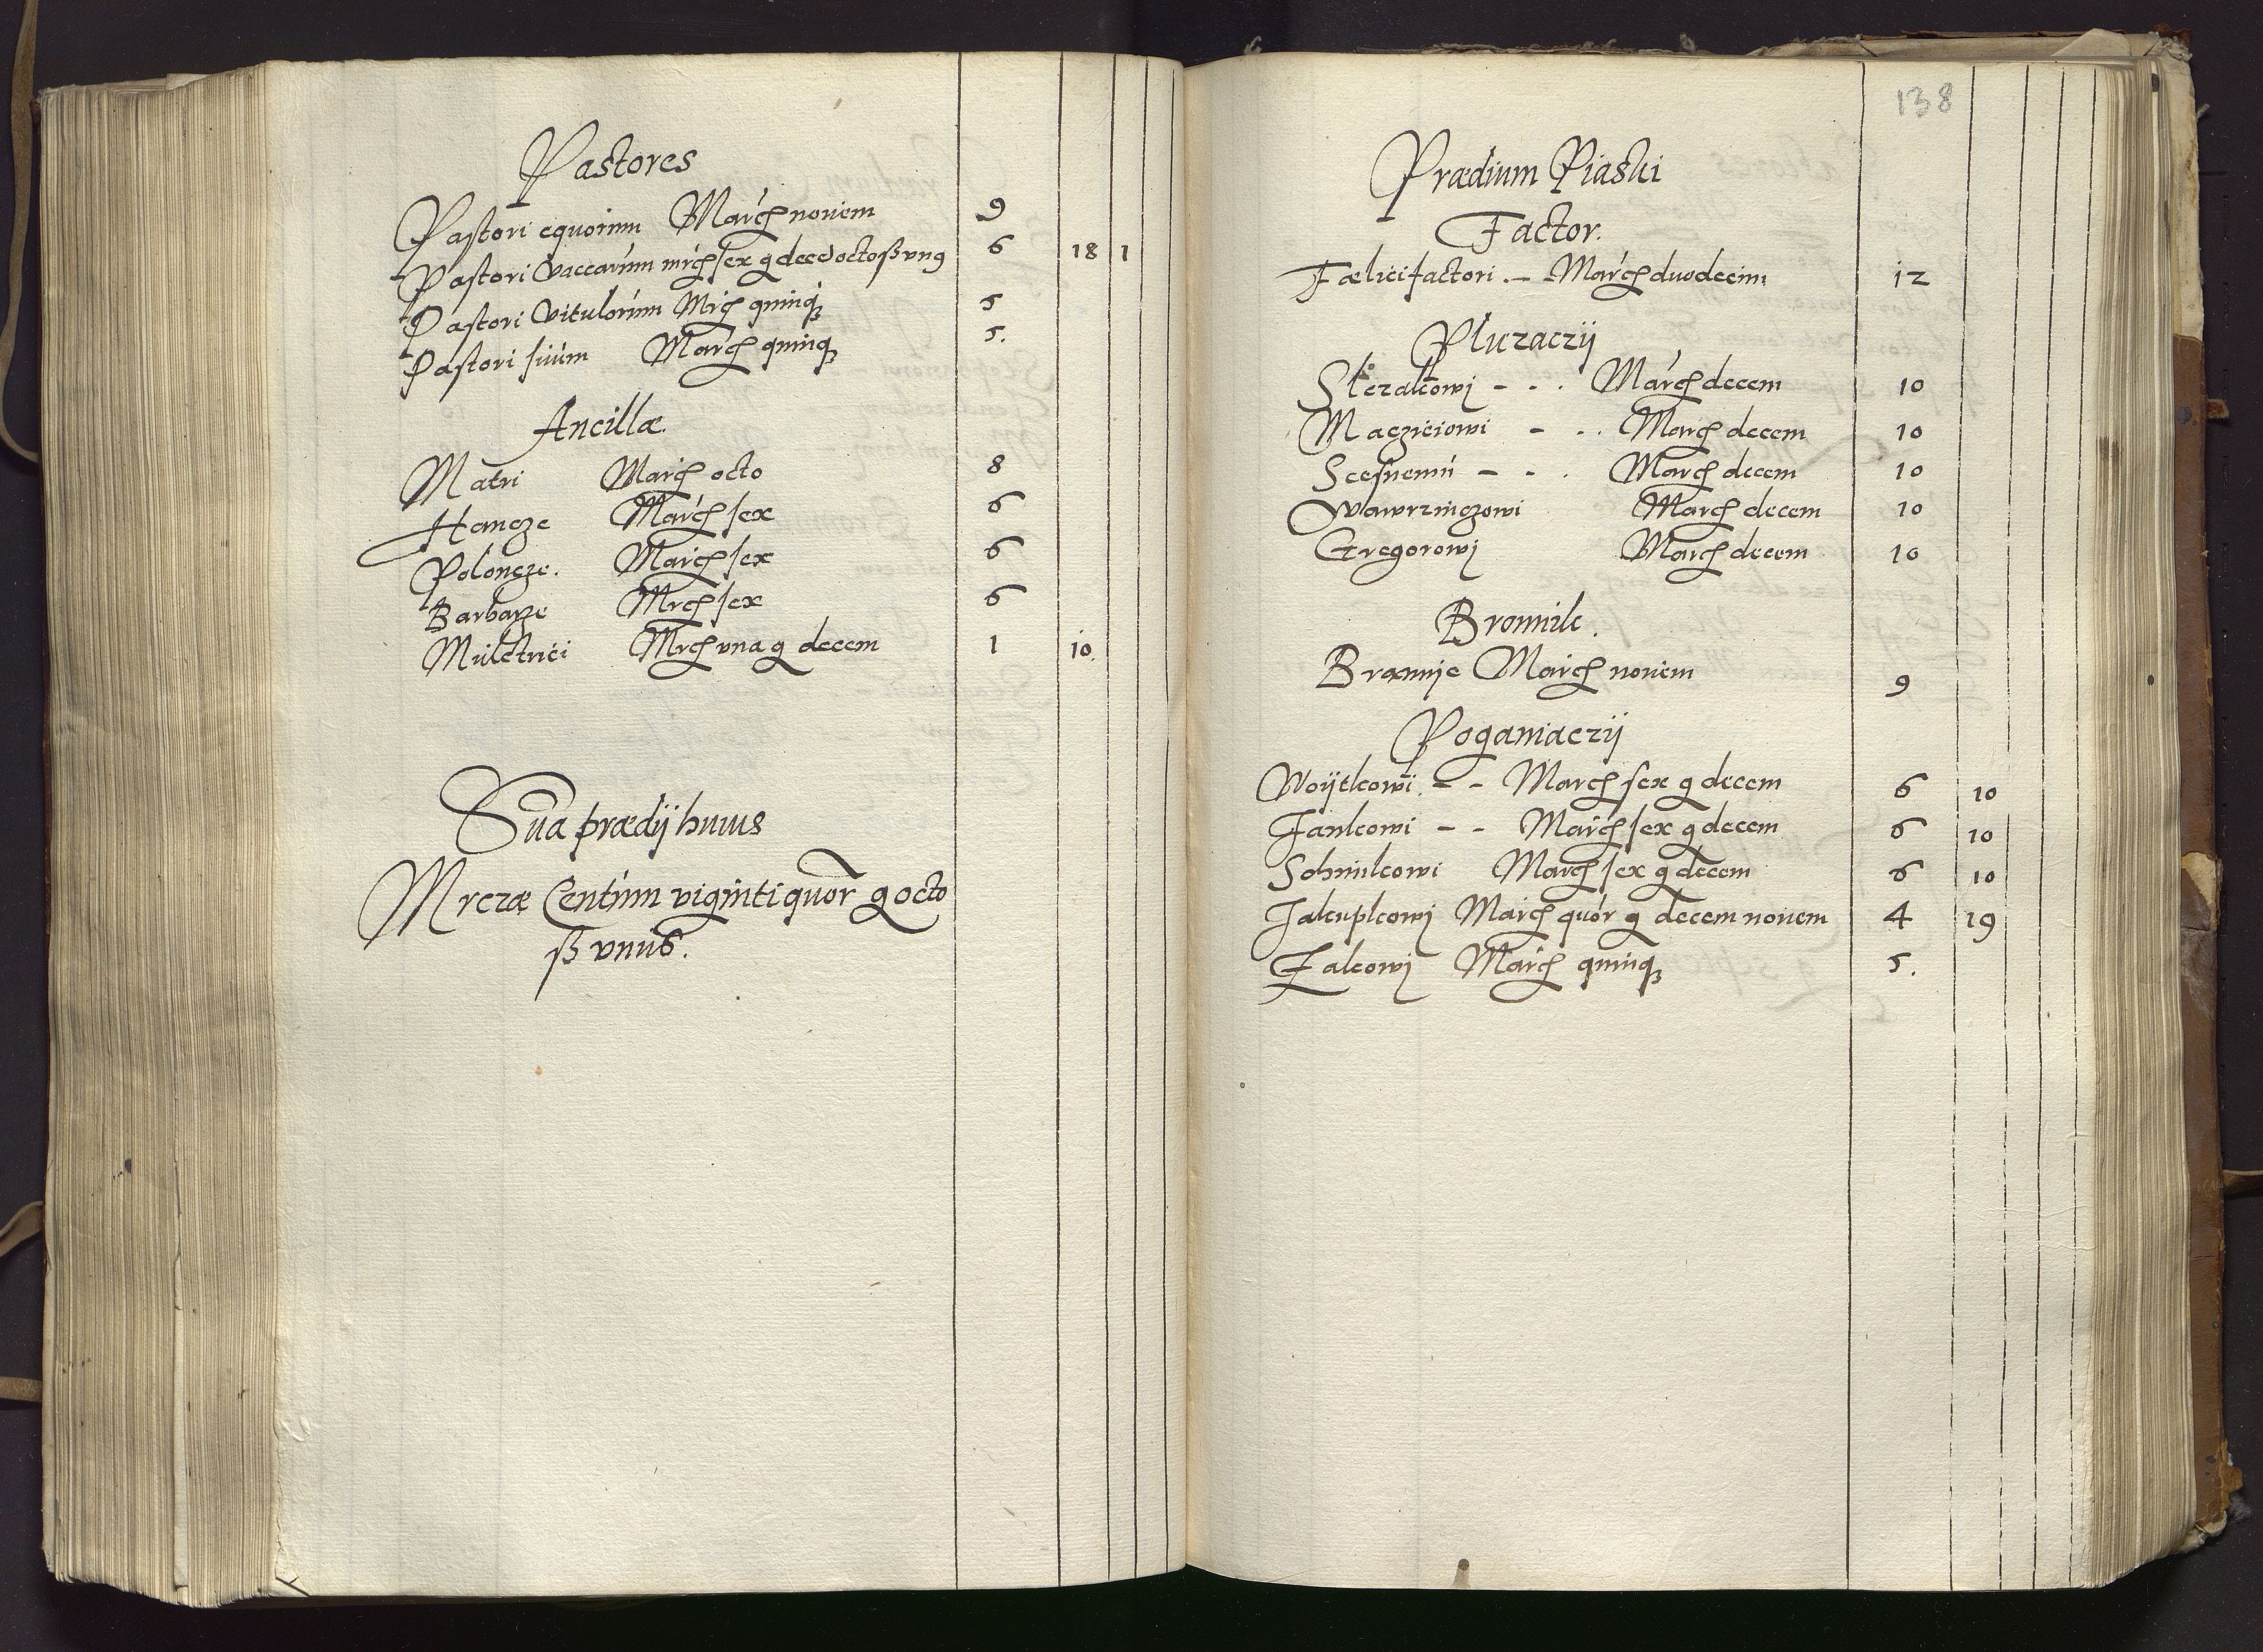 Pastores
Pastori equorum March nouem 9
Pastori vaccarum mrch sex g decē octo ß vng 6 18 1
Pastori vitulorum Mrch quinq3 5
Pastori suum March quinq3 5.
Ancillæ.
Matri March octo 8
Hancze March sex 6
Poloncze. March sex 6
Barbarze Mrch sex 6
Mulctrici Mrch vna g decem 1 10.
Sūa prædij huius
Mrczæ Centum viginti quor g octo
ß vnus.
138
Prædium Piaski
Factor.
Fælici factori. – March duodecim 12
Pluzaczij
Stezalcowj – - . March decem 10
Macziciowi - - . March decem 10
Scesnemu – - . March decem 10
Wawrzinczowi March decem 10
Gregorowj March decem 10
Bronnik.
Brannÿe March nouem 9
Poganiaczij
Woÿtkowi. - - March sex g decem 6 10
Jankowi - - March sex g decem 6 10
Schimkowi March sex g decem 6 10
Jakupkowj March quor g decem nouem 4 19
Falcowj March quinq3 5.